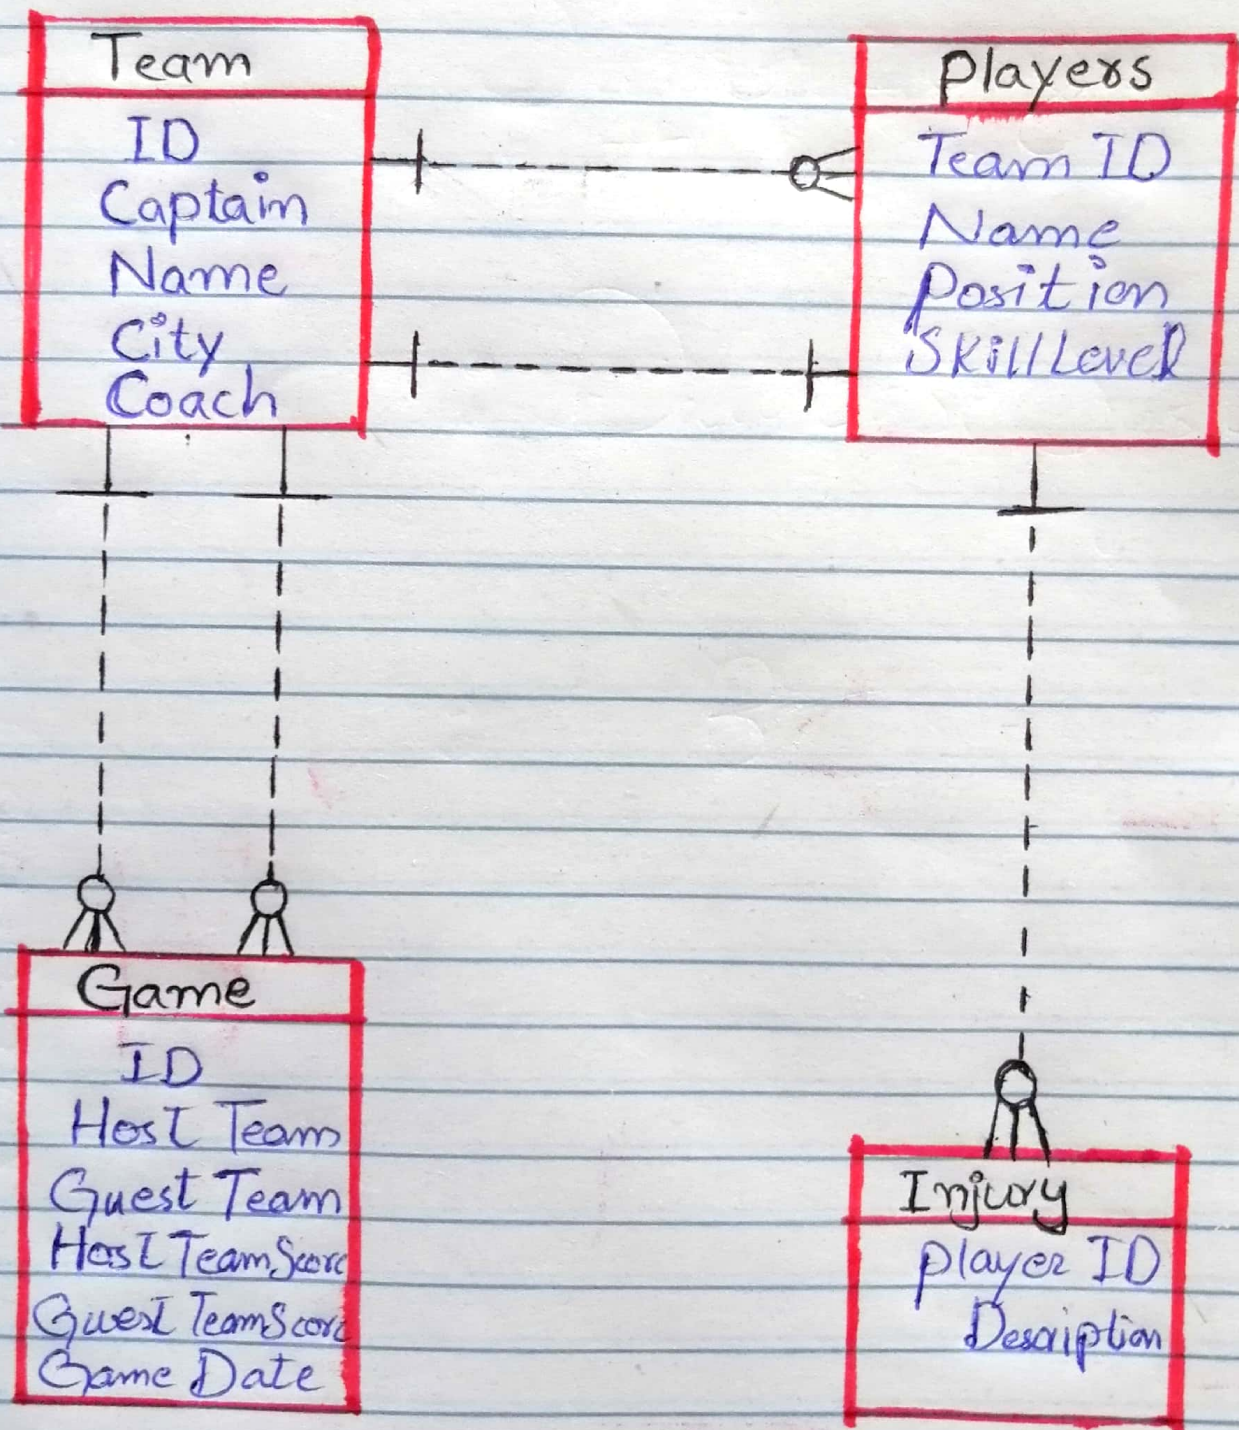 Team
ID
Captain
Name
City
Coach
Players
Team ID
Name
Position
Skill Level
Game
ID
Host Team
Guest Team
Host Team Score
Guest Team Score
Game Date
Injury
Player ID
Description